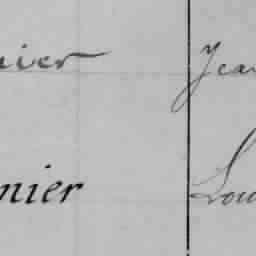 nier Jean
nier Lou